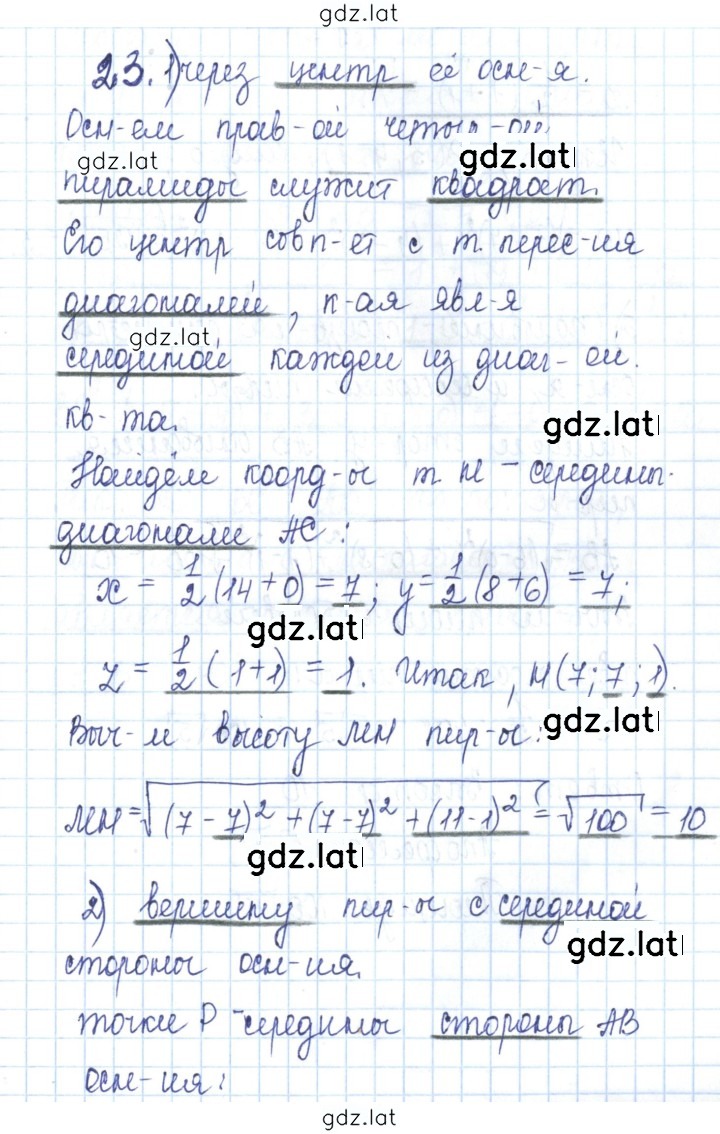 gdz.lat
23. 1) через центр её осн-я.
Осн-ем прав-ой четыр-ой
gdz.lat
gdz.lat
пирамиды служит квадрат.
Его центр совп-ет с т. перес-ия
диагоналей, к-ая явл-я
gdz.lat
серединой каждой из диаг-ей.
кв-та.
gdz.lat
Найдём коорд-ы т. H - середины
диагонали AC:
x = 1/2 (14+0) = 7; y = 1/2 (8+6) = 7;
gdz.lat
z = 1/2 (1+1) = 1. Итак, H(7; 7; 1).
gdz.lat
Выч-м высоту MH пир-ы:
MH = √(7-7)² + (7-7)² + (11-1)² = √100 = 10
gdz.lat
2) вершину пир-ы с серединой
gdz.lat
стороны осн-ия.
точки P - середины стороны AB
осн-ия:
gdz.lat